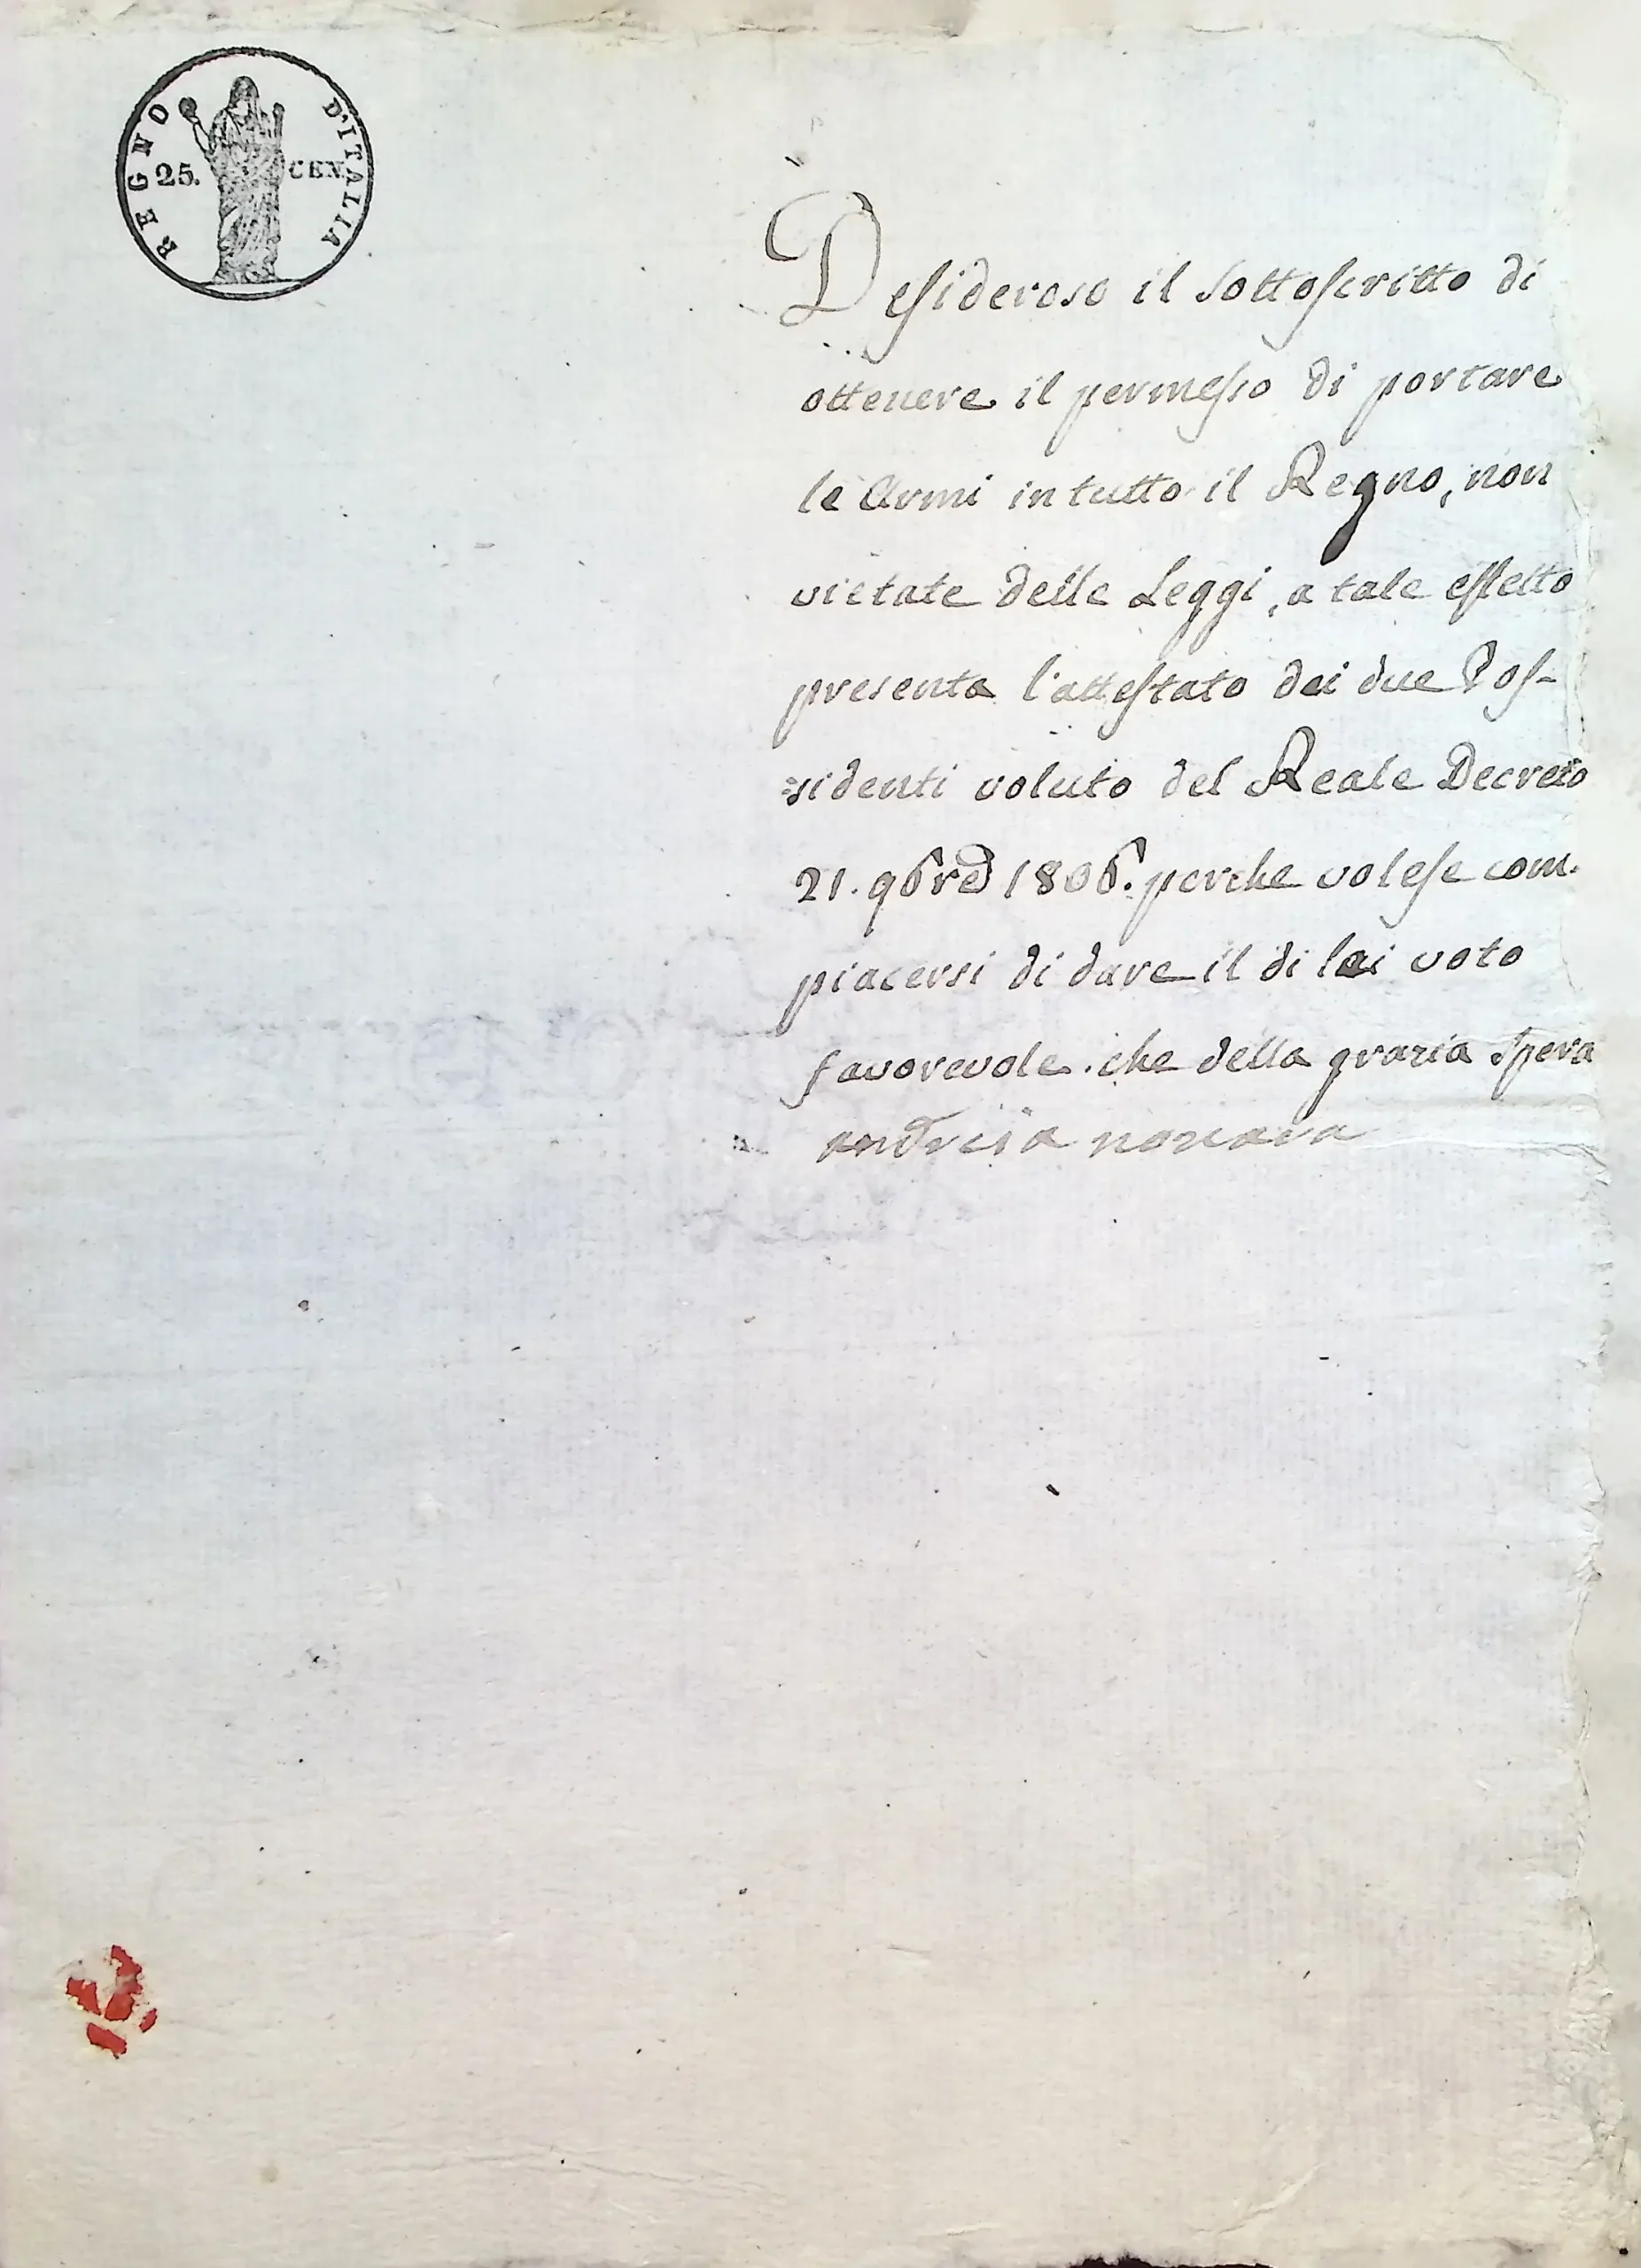 REGNO D'ITALIA
25. CEN.
Desideroso il sottoscritto di
ottenere il permesso di portare
le Armi in tutto il Regno, non
vietate delle Leggi, a tale effetto
presenta l'attestato dei due Pos-
sidenti voluto del Reale Decreto
21. 9bre 1806. perche volese com.
piacersi di dare il di lei voto
favorevole. che della grazia spera